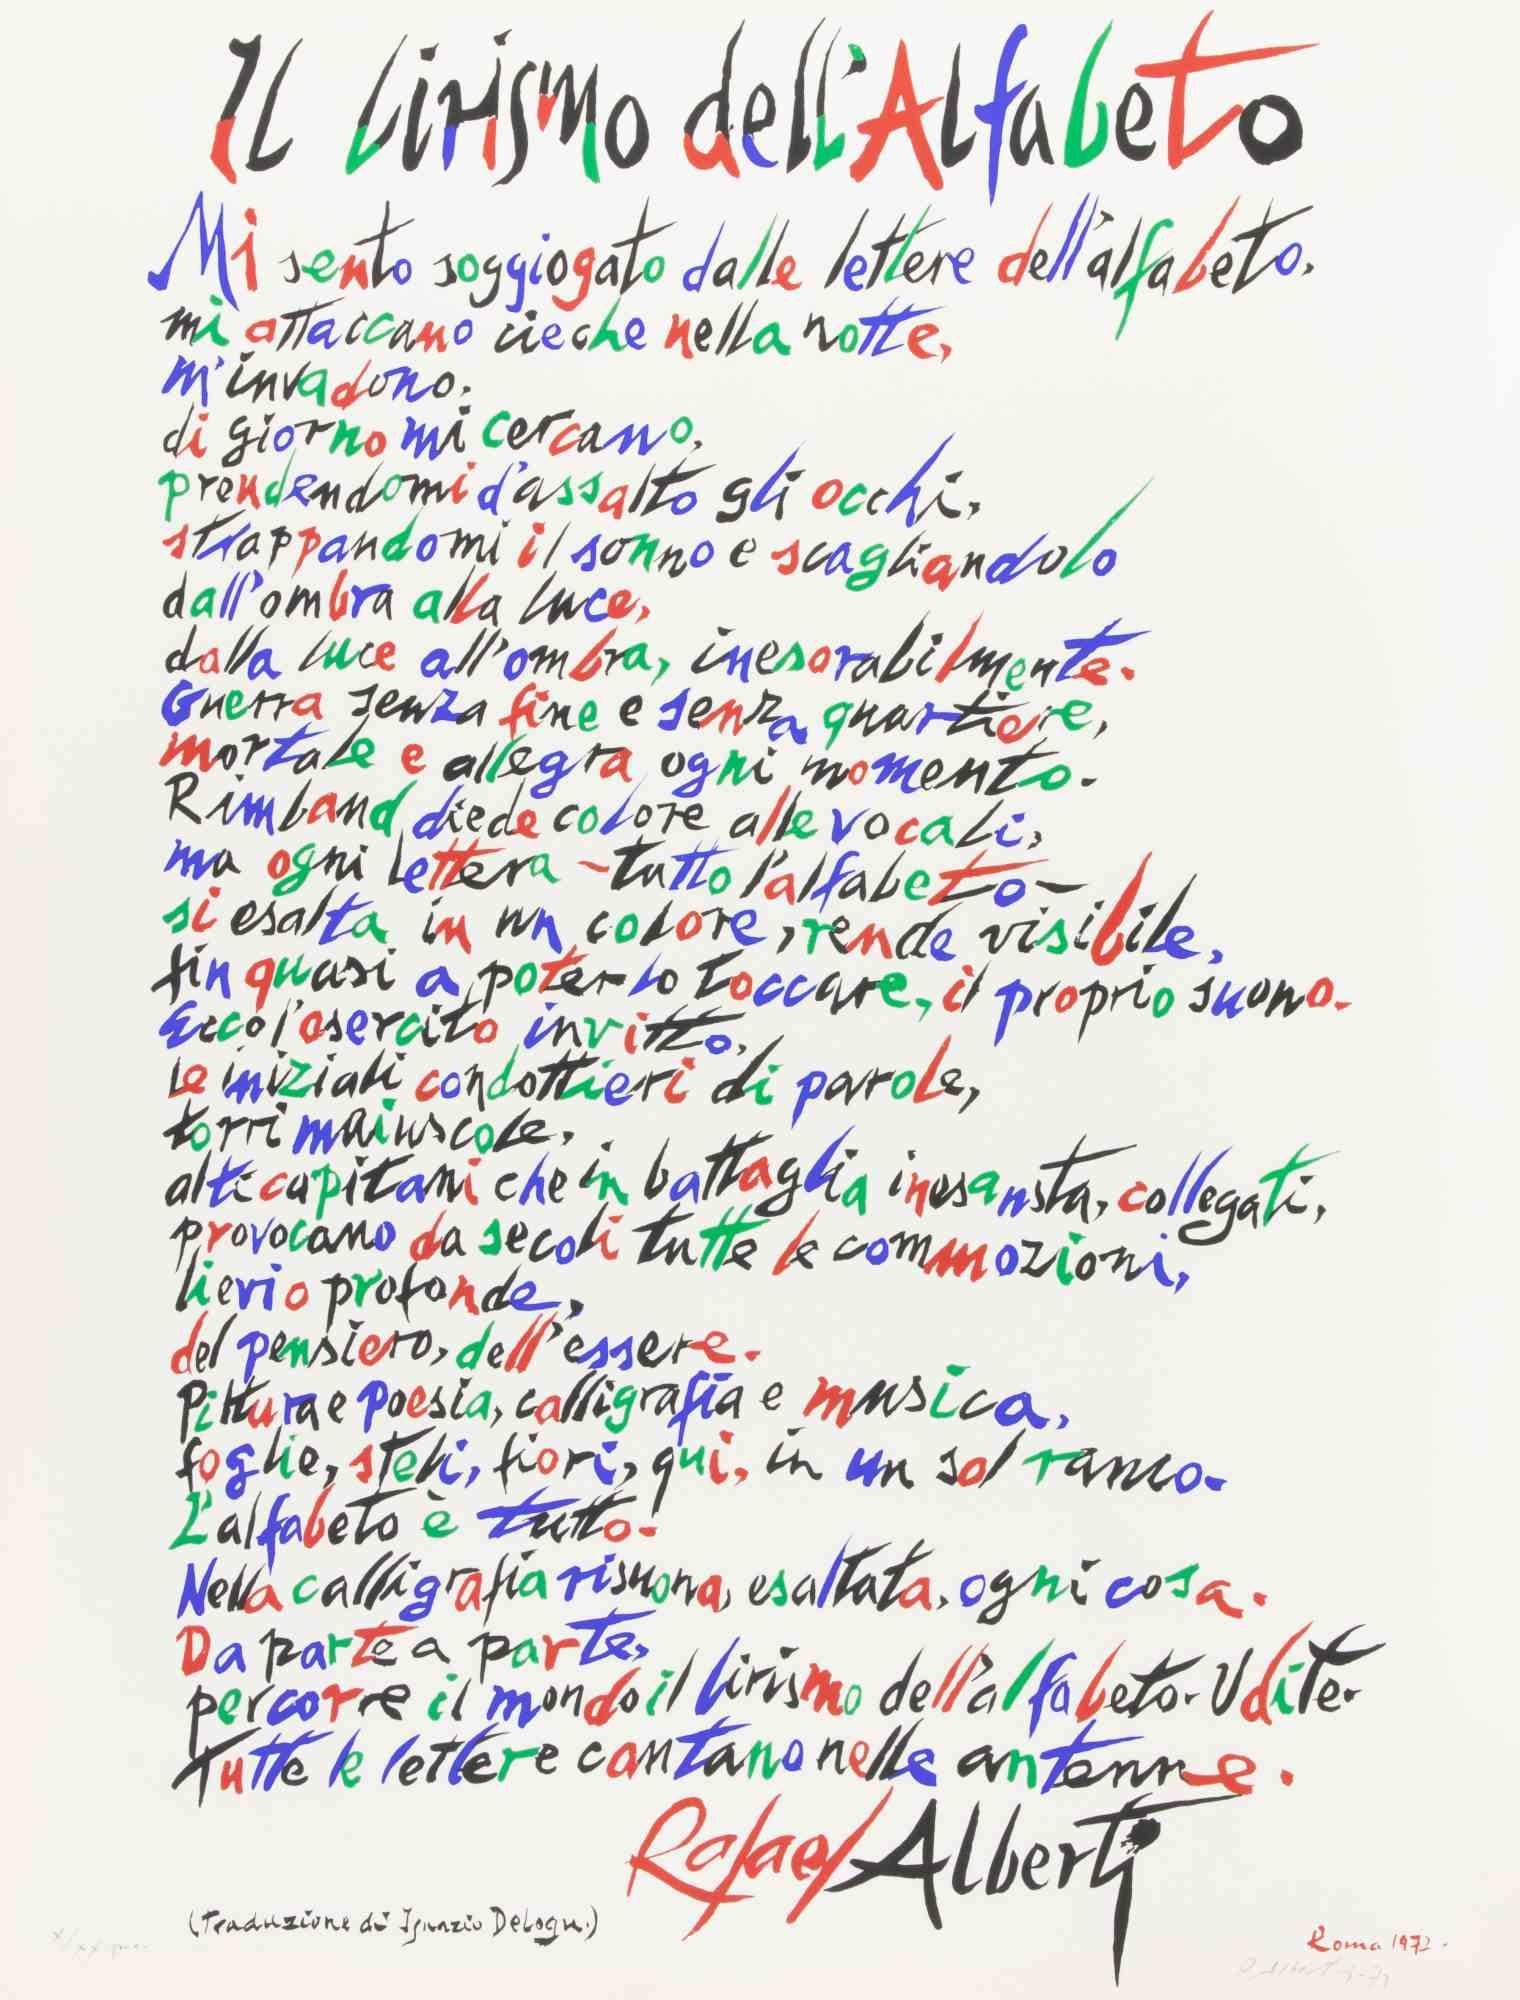 Il lirismo dell'Alfabeto
Mi sento soggiogato dalle lettere dell'alfabeto,
mi attaccano cieche nella notte,
m'invadono,
di giorno mi cercano,
prendendomi d'assalto gli occhi,
strappandomi il sonno e scagliandolo
dall'ombra alla luce,
dalla luce all'ombra, inesorabilmente.
Guerra senza fine e senza quartiere,
mortale e allegra ogni momento.
Rimbaud diede colore alle vocali,
ma ogni lettera - tutto l'alfabeto -
si esalta in un colore, rende visibile,
fin quasi a poterlo toccare, il proprio suono.
Ecco l'esercito invitto,
le iniziali condottieri di parole,
torri maiuscole,
alti capitani che in battaglia inesausta, collegati,
provocano da secoli tutte le commozioni,
lievi o profonde,
del pensiero, dell'essere.
Pittura e poesia, calligrafia e musica,
foglie, steli, fiori, qui, in un sol ramo.
L'alfabeto è tutto.
Nella calligrafia risuona, esaltata, ogni cosa.
Da parte a parte,
percorre il mondo il lirismo dell'alfabeto. Udite.
Tutte le lettere cantano nelle antenne.
Rafael Alberti
(traduzione di Ignazio Delogu.)
Roma 1972.